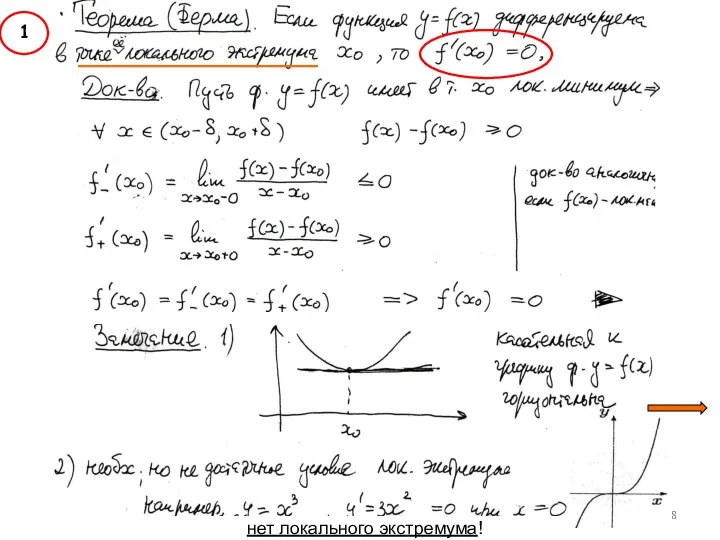 1
Теорема (Ферма). Если функция y = f(x) дифференцируема
в точке ее локального экстремума x₀, то f'(x₀) = 0.
Док-во. Пусть ф. y = f(x) имеет в т. x₀ лок. минимум ⇒
∀ x ∈ (x₀ - δ, x₀ + δ) f(x) - f(x₀) ≥ 0
f'₋(x₀) = lim x→x₀-0 f(x) - f(x₀) / x - x₀ ≤ 0
док-во аналогичн.
если f(x₀) - лок.
f'₊(x₀) = lim x→x₀+0 f(x) - f(x₀) / x - x₀ ≥ 0
f'(x₀) = f'₋(x₀) = f'₊(x₀) => f'(x₀) = 0
Замечание. 1)
x₀
касательная к
графику ф. y = f(x)
горизонтальна
y
x
2) необх., но не достаточное условие лок. экстремума
Например, y = x³, y' = 3x² = 0 при x = 0
8
нет локального экстремума!